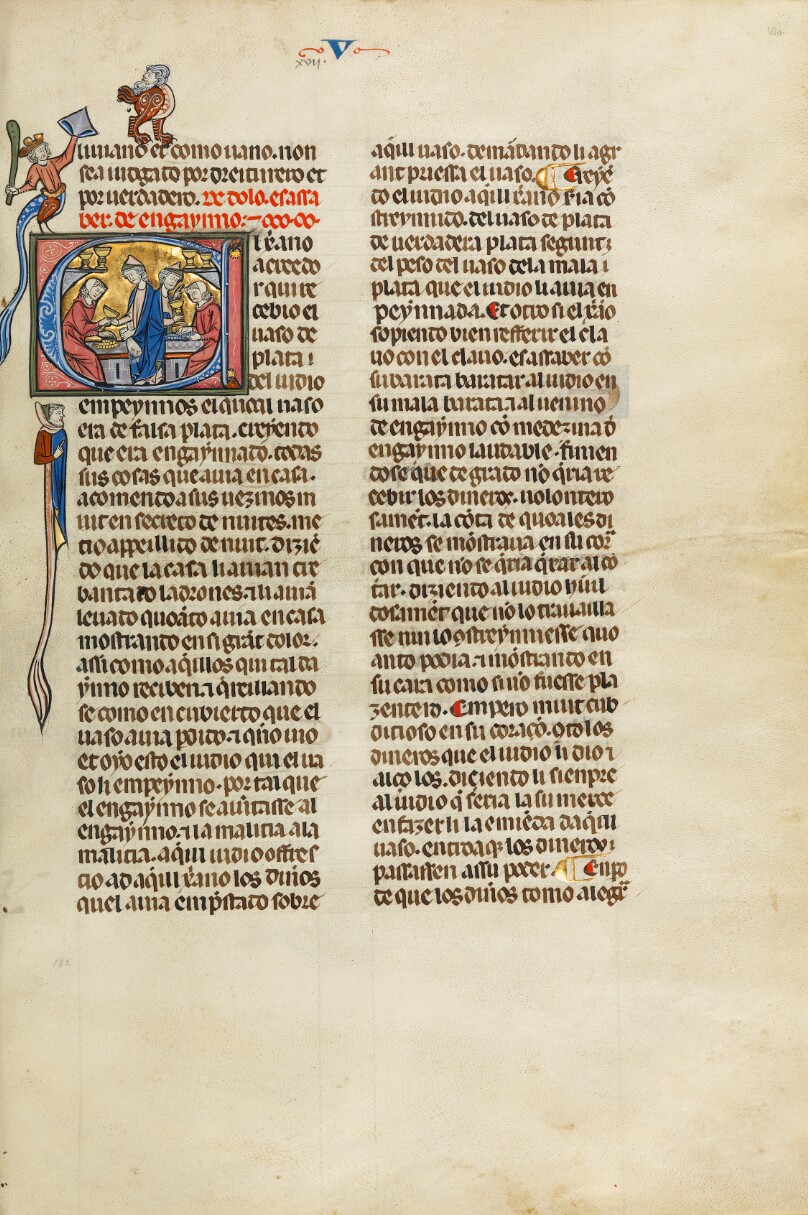 V
xvij.
liuiano et como uano. non
sea iudgado por dreiturero et
por uerdadero. De dolo. es assa
ber. de engaynno:
l xr̄ano
acreedo
r qui re
cebio el
uaso de
plata ⁊
del iudio
empeynnos el quoal uaso
era de falsa plata. creyendo
que era engaynnado. todas
sus cosas que auia en casa.
acomendo a sus uezinos m
uit en secreto de nuites. me
tio appeillido de nuit. diziē
do que la casa li auian cre
bantado ladrones. ⁊ li auiā
leuado quoāto auia en casa
mostrando en si grāt dolor.
assi como aq̄illos qui tal da
ynno reciben. ⁊ q̄reillando
se como en cubierto que el
uaso auia perdido. ⁊ q̄ño uio
et oyo esto el iudio qui el ua
so li empeynno. por tal que
el engaynno se aiūtasse al
engaynno. ⁊ la malicia a la
malicia. aq̄il iudio offres
cio ad aq̄il xr̄ano los diñōs
quel auia emp̄stado sobre
aq̄il uaso. demādando li a gr
ant priessa el uaso. Creyē
do el iudio aq̄il xr̄ano fía cō
streynnido. del uaso de plata
de uerdadera plata segunt
del peso del uaso de la mala
plata que el iudio li auia en
peynnada. Et otro si el xr̄io
sopiendo bien refferir el cla
uo con el clauo. es assaber cō
su barata baratar al iudio en
su mala barata. ⁊ al uenino
de engaynno cō medezina d
engaynno laudable. finnien
dose que de grado nō q̄ria re
cebir los dineros. uolontero
samēt. la cōta de quoales di
neros se mōstraua en su cor
con que no se q̄ria q̄rar al cō
tar. diziendo al iudio hūil
dosamēt que nō lo trauailla
sse nin lo 9streynnesse quo
anto podia. ⁊ mōstrando en
su cara como si nō fuesse pla
zentero. Empero muit cub
dicioso en su coraçō. 9to los
dineros que el iudio li dio ⁊
alço los. diçiendo li sienpre
al iudio q̄ seria la su merce
en fazer li la emiēda daq̄il
uaso. entroa q̄ los dineros
passassen a ssu poder. Enpo
de que los diñōs tomo alegr